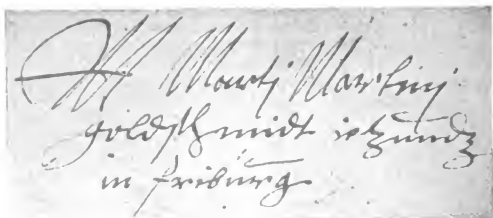 Marti Martini
goldschmidt ietzundt
in friburg